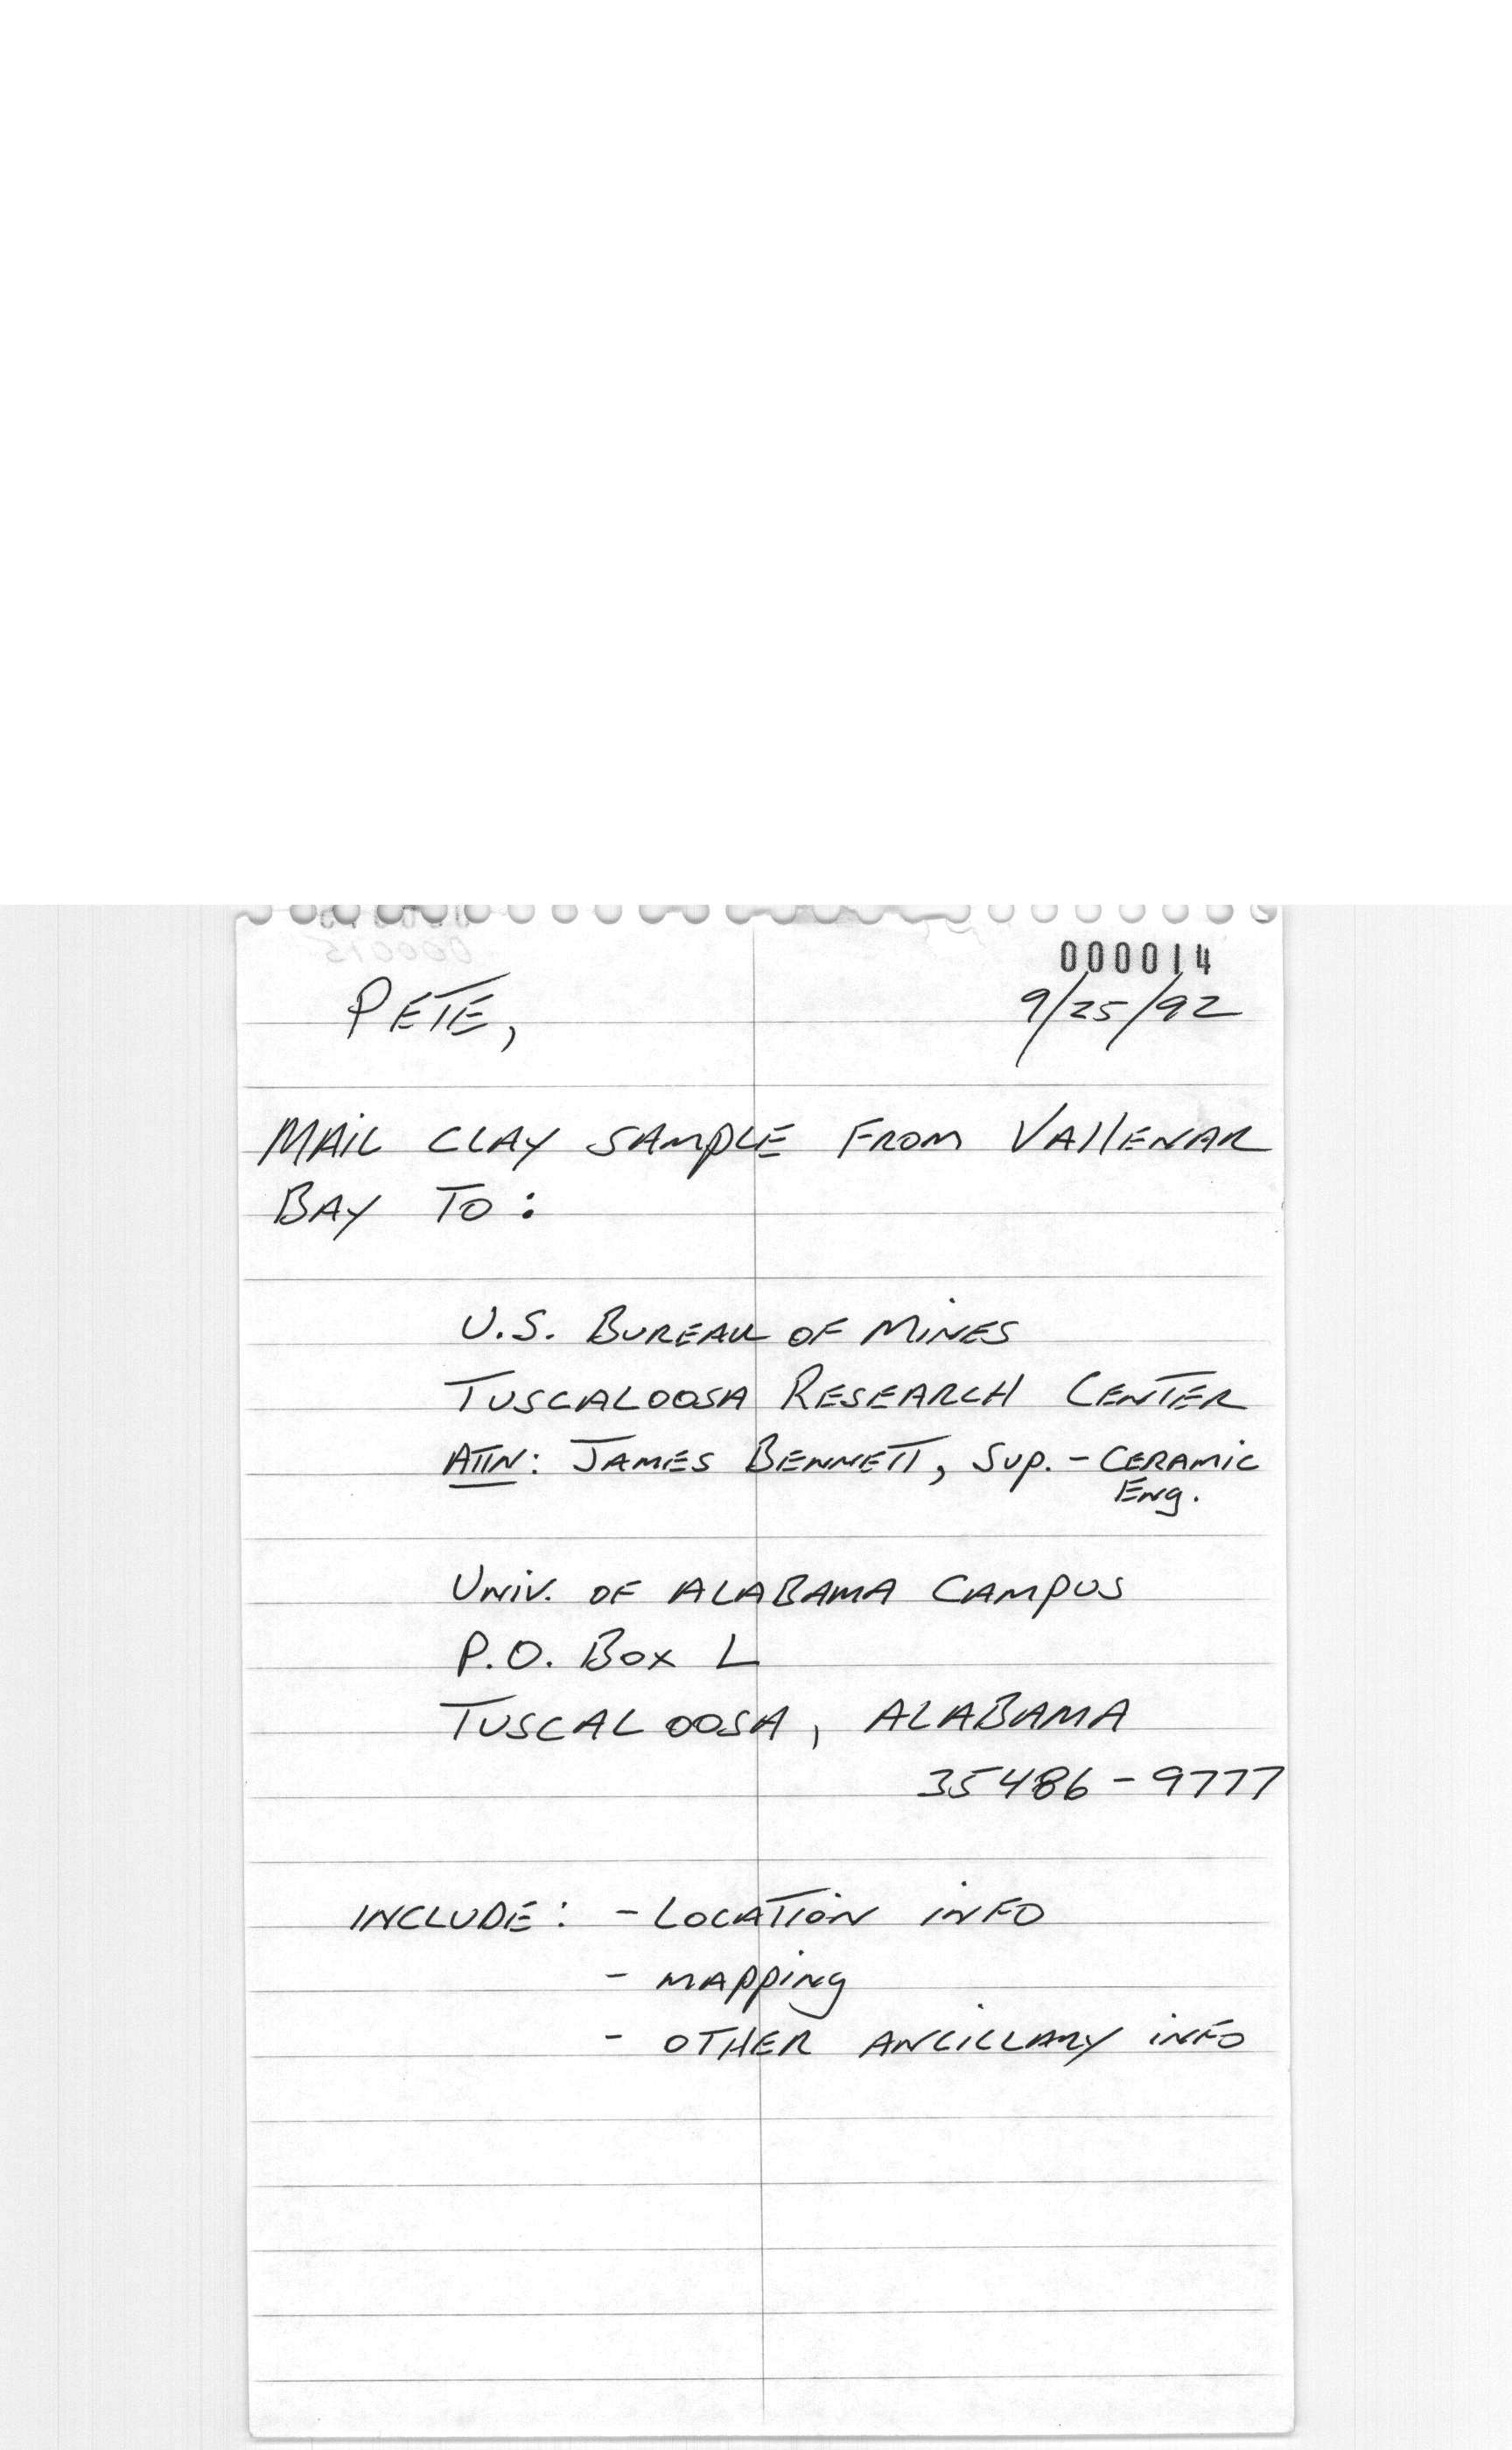 000014
PETE,
9/25/92
MAIL CLAY SAMPLE FROM VALLENAR
BAY TO:
U.S. BUREAU OF MINES
TUSCALOOSA RESEARCH CENTER
ATTN: JAMES BENNETT, SUP. - CERAMIC
ENG.
UNIV. OF ALABAMA CAMPUS
P.O. BOX L
TUSCALOOSA, ALABAMA
35486-9777
INCLUDE: - LOCATION INFO
- MAPPING
- OTHER ANCILLARY INFO